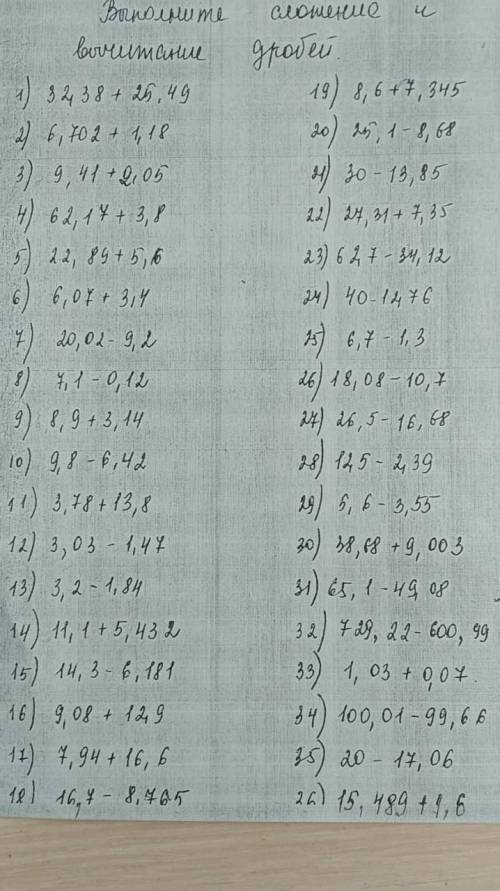 Выполните сложение и
вычитание дробей.
1) 32,38 + 25,49
2) 6,702 + 1,18
3) 9,41 + 2,05
4) 62,17 + 3,8
5) 22,89 + 5,6
6) 6,07 + 3,4
7) 20,02 - 9,2
8) 7,1 - 0,12
9) 8,9 + 3,14
10) 9,8 - 6,42
11) 3,78 + 13,8
12) 3,03 - 1,47
13) 3,2 - 1,84
14) 11,1 + 5,432
15) 14,3 - 6,181
16) 9,08 + 12,9
17) 7,94 + 16,6
18) 16,7 - 8,765
19) 8,6 + 7,345
20) 25,1 - 8,68
21) 30 - 13,85
22) 27,31 + 7,35
23) 62,7 - 34,12
24) 40 - 12,76
25) 6,7 - 1,3
26) 18,08 - 10,7
27) 26,5 - 16,68
28) 12,5 - 2,39
29) 5,6 - 3,55
30) 38,68 + 9,003
31) 65,1 - 49,08
32) 729,22 - 600,99
33) 1,03 + 0,07.
34) 100,01 - 99,66
35) 20 - 17,06
26) 15,489 + 1,6